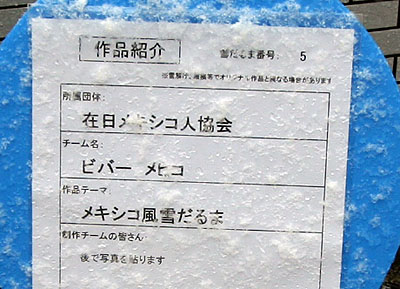 作品紹介 雪だるま番号: 5
※雪解け、着雪等でオリジナル作品と異なる場合があります
所属団体:
在日メキシコ人協会
チーム名:
ビバー メヒコ
作品テーマ:
メキシコ風雪だるま
創作チームの皆さん
後で写真を貼ります